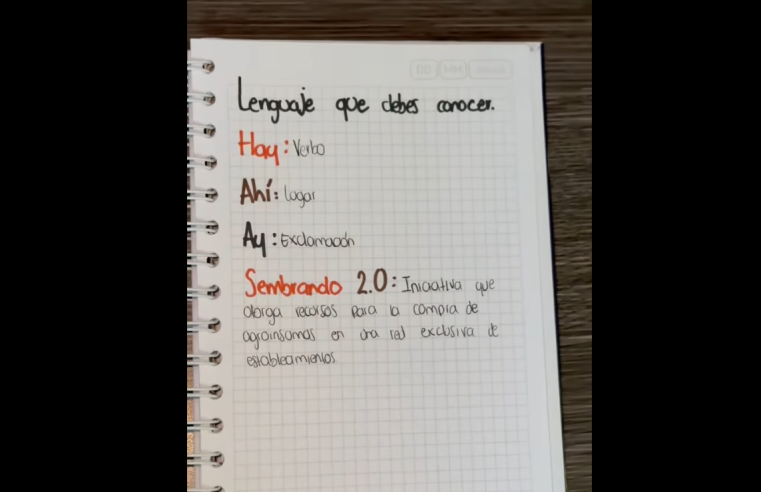 Lenguaje que debes conocer.
Hay: Verbo
Ahí: Lugar
Ay: Exclamación
Sembrando 2.0: Iniciativa que
otorga recursos para la compra de
agroinsumos en una red exclusiva de
establecimientos